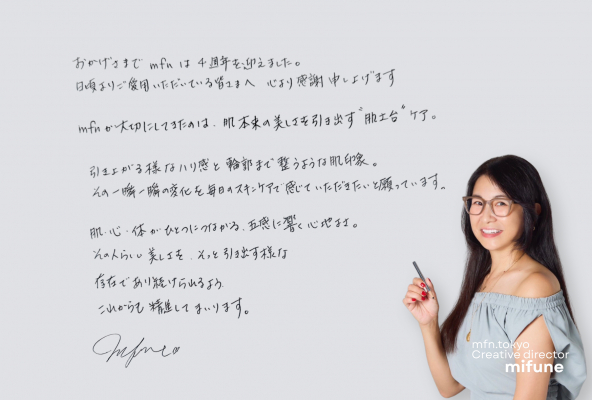 おかげさまで mfn は 4周年を迎えました。
日頃よりご愛用いただいている皆さまへ 心より感謝申し上げます
mfnが大切にしてきたのは、肌本来の美しさを引き出す“肌土台”ケア。
引き上がる様なハリ感と輪郭まで整うような肌印象。
その一瞬一瞬の変化を毎日のスキンケアで感じていただきたいと願っています。
肌・心・体がひとつにつながる、五感に響く心地よさ。
その人らしい美しさを、そっと引き出す様な
存在であり続けられるよう
これからも精進してまいります。
mfn.tokyo
Creative director
mifune